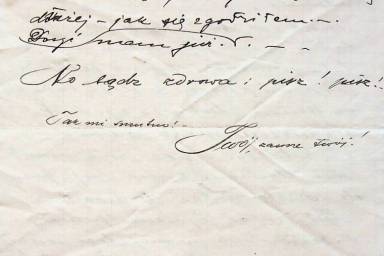 dłużej – jak się zgodziłem. –
Drugi mam już. – –
No bądź zdrowa i pisz! pisz..
Tak mi smutno!
Twój, zawsze Twój!